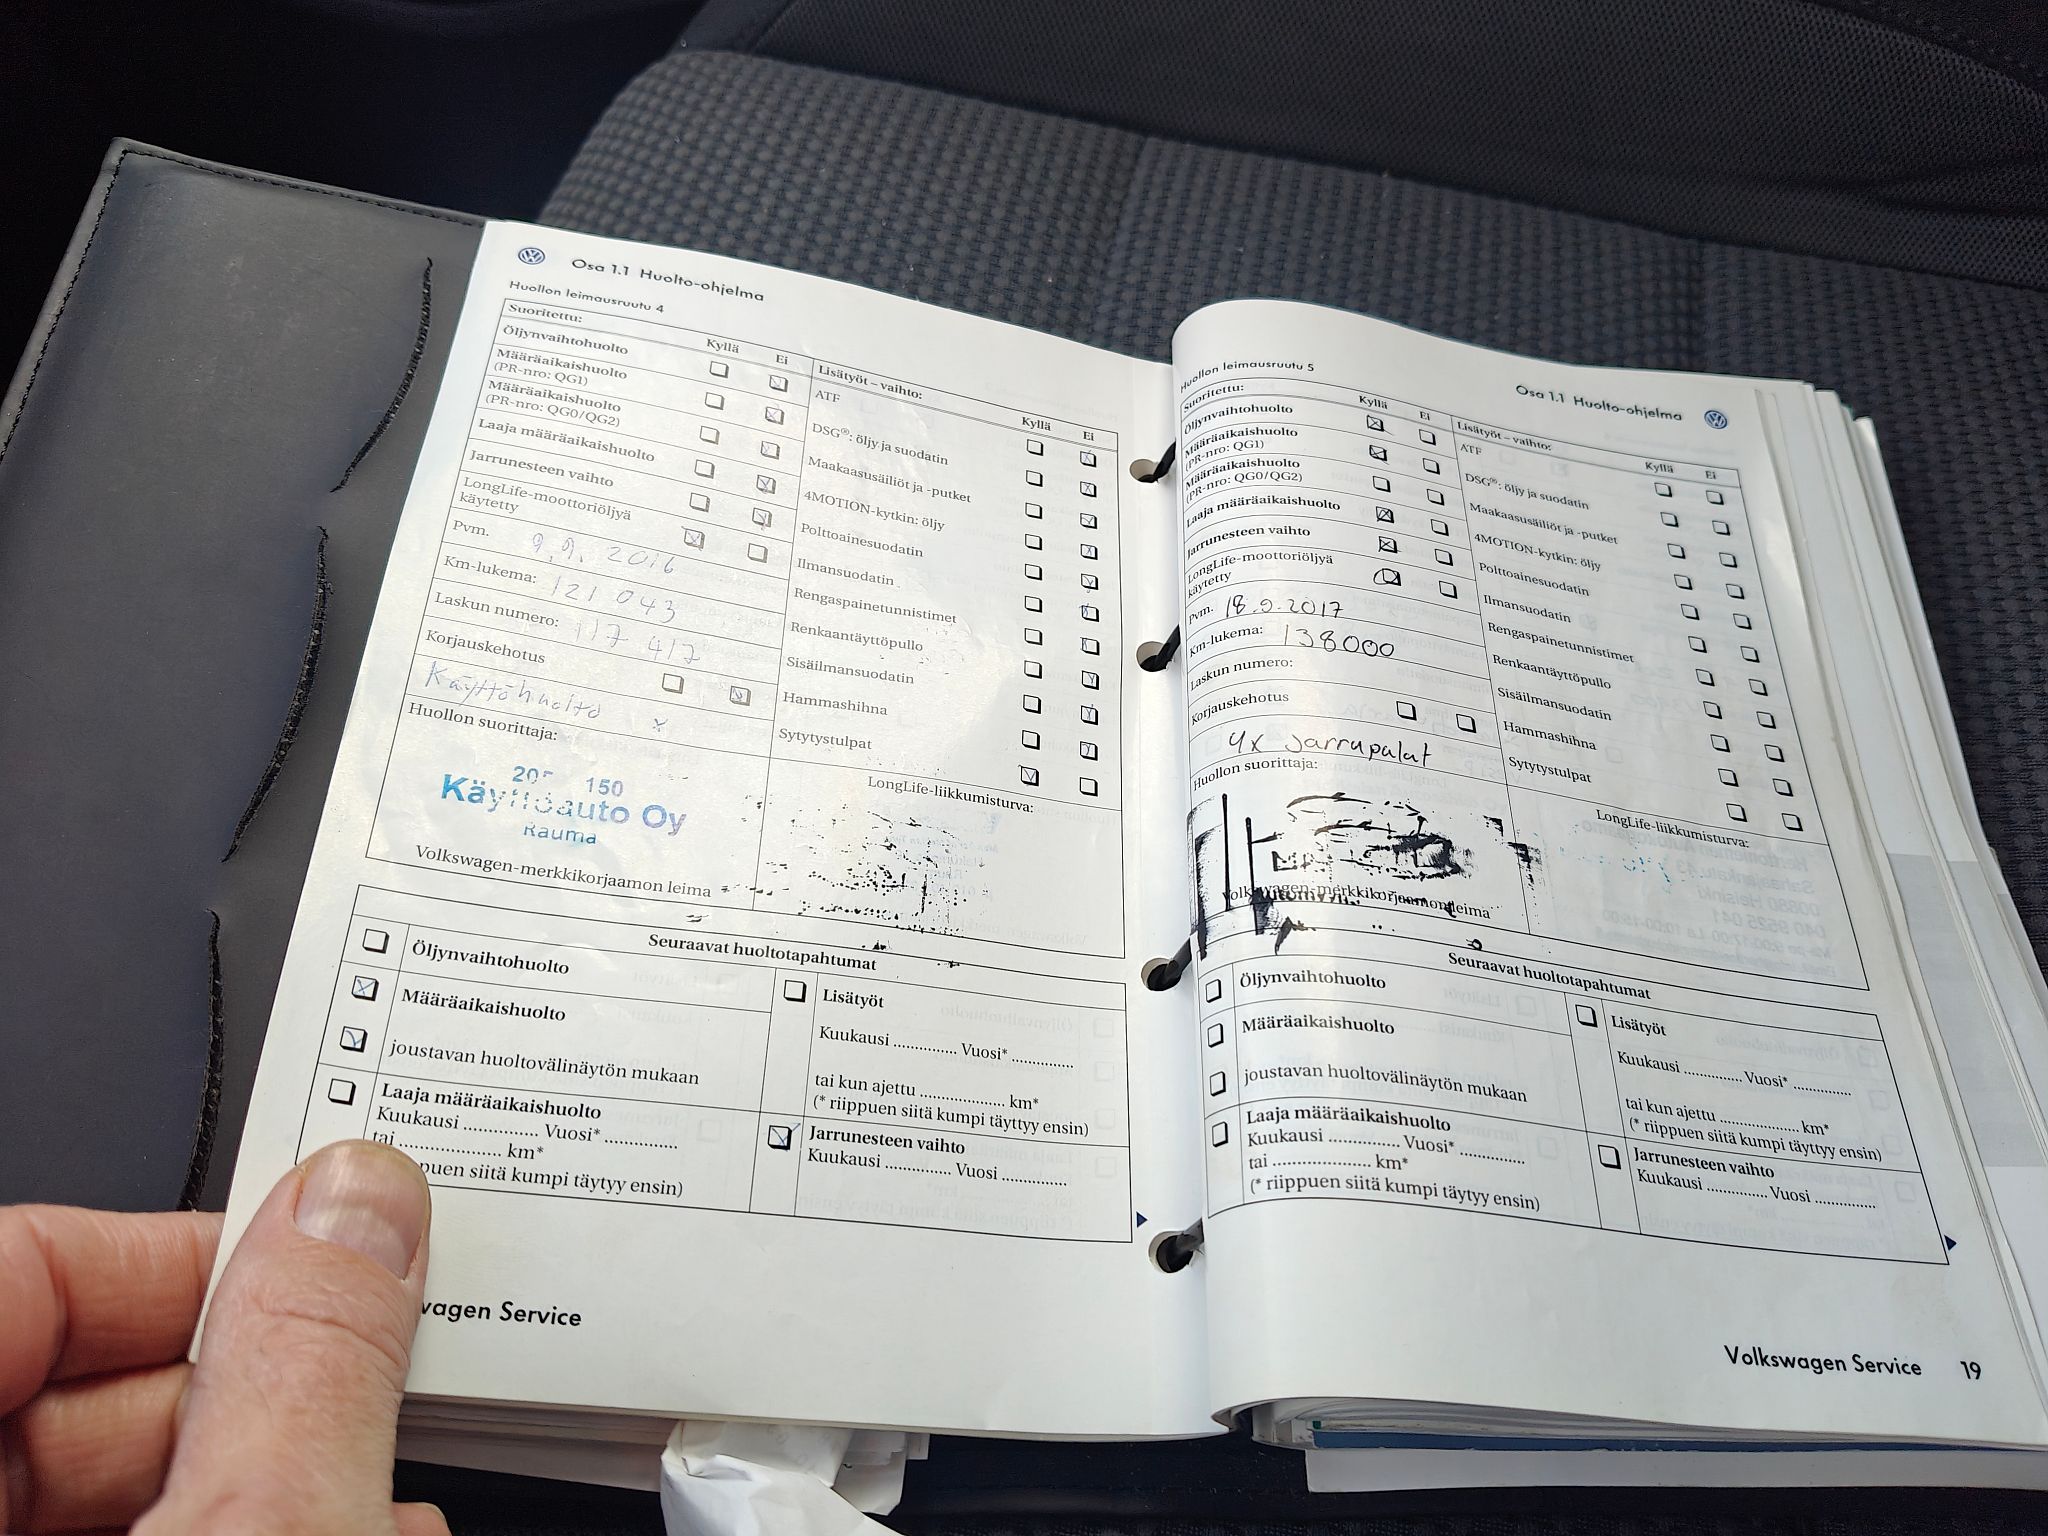 Osa 1.1 Huolto-ohjelma
Huollon leimausruutu 4
Suoritettu:
Kyllä Ei
Öljynvaihtohuolto
Määräaikaishuolto
(PR-nro: QG1)
Määräaikaishuolto
(PR-nro: QG0/QG2)
Laaja määräaikaishuolto
Jarrunesteen vaihto
LongLife-moottoriöljyä
käytetty
Pvm. 9.9. 2016
Km-lukema: 121 043
Laskun numero: 117 417
Korjauskehotus
Käyttöhuolto x
Huollon suorittaja:
150
Käyttöauto Oy
Rauma
Volkswagen-merkkikorjaamon leima
Lisätyöt – vaihto:
Kyllä Ei
ATF
DSG®: öljy ja suodatin
Maakaasusäiliöt ja -putket
4MOTION-kytkin: öljy
Polttoainesuodatin
Ilmansuodatin
Rengaspainetunnistimet
Renkaantäyttöpullo
Sisäilmansuodatin
Hammashihna
Sytytystulpat
LongLife-liikkumisturva:
Seuraavat huoltotapahtumat
Öljynvaihtohuolto
Määräaikaishuolto
joustavan huoltovälinäytön mukaan
Laaja määräaikaishuolto
Kuukausi .............. Vuosi* ..............
tai .................... km*
riippuen siitä kumpi täytyy ensin)
Lisätyöt
Kuukausi .............. Vuosi* ..............
tai kun ajettu .................... km*
(* riippuen siitä kumpi täyttyy ensin)
Jarrunesteen vaihto
Kuukausi .............. Vuosi ..............
wagen Service
Osa 1.1 Huolto-ohjelma
Huollon leimausruutu 5
Suoritettu:
Kyllä Ei
Öljynvaihtohuolto
Määräaikaishuolto
(PR-nro: QG1)
Määräaikaishuolto
(PR-nro: QG0/QG2)
Laaja määräaikaishuolto
Jarrunesteen vaihto
LongLife-moottoriöljyä
käytetty
Pvm. 18.9.2017
Km-lukema: 138000
Laskun numero:
Korjauskehotus
4x Jarrupalat
Huollon suorittaja:
Volkswagen-merkkikorjaamon leima
Lisätyöt – vaihto:
Kyllä Ei
ATF
DSG®: öljy ja suodatin
Maakaasusäiliöt ja -putket
4MOTION-kytkin: öljy
Polttoainesuodatin
Ilmansuodatin
Rengaspainetunnistimet
Renkaantäyttöpullo
Sisäilmansuodatin
Hammashihna
Sytytystulpat
LongLife-liikkumisturva:
Seuraavat huoltotapahtumat
Öljynvaihtohuolto
Määräaikaishuolto
joustavan huoltovälinäytön mukaan
Laaja määräaikaishuolto
Kuukausi .............. Vuosi* ..............
tai .................... km*
(* riippuen siitä kumpi täytyy ensin)
Lisätyöt
Kuukausi .............. Vuosi* ..............
tai kun ajettu .................... km*
(* riippuen siitä kumpi täyttyy ensin)
Jarrunesteen vaihto
Kuukausi .............. Vuosi ..............
Volkswagen Service 19